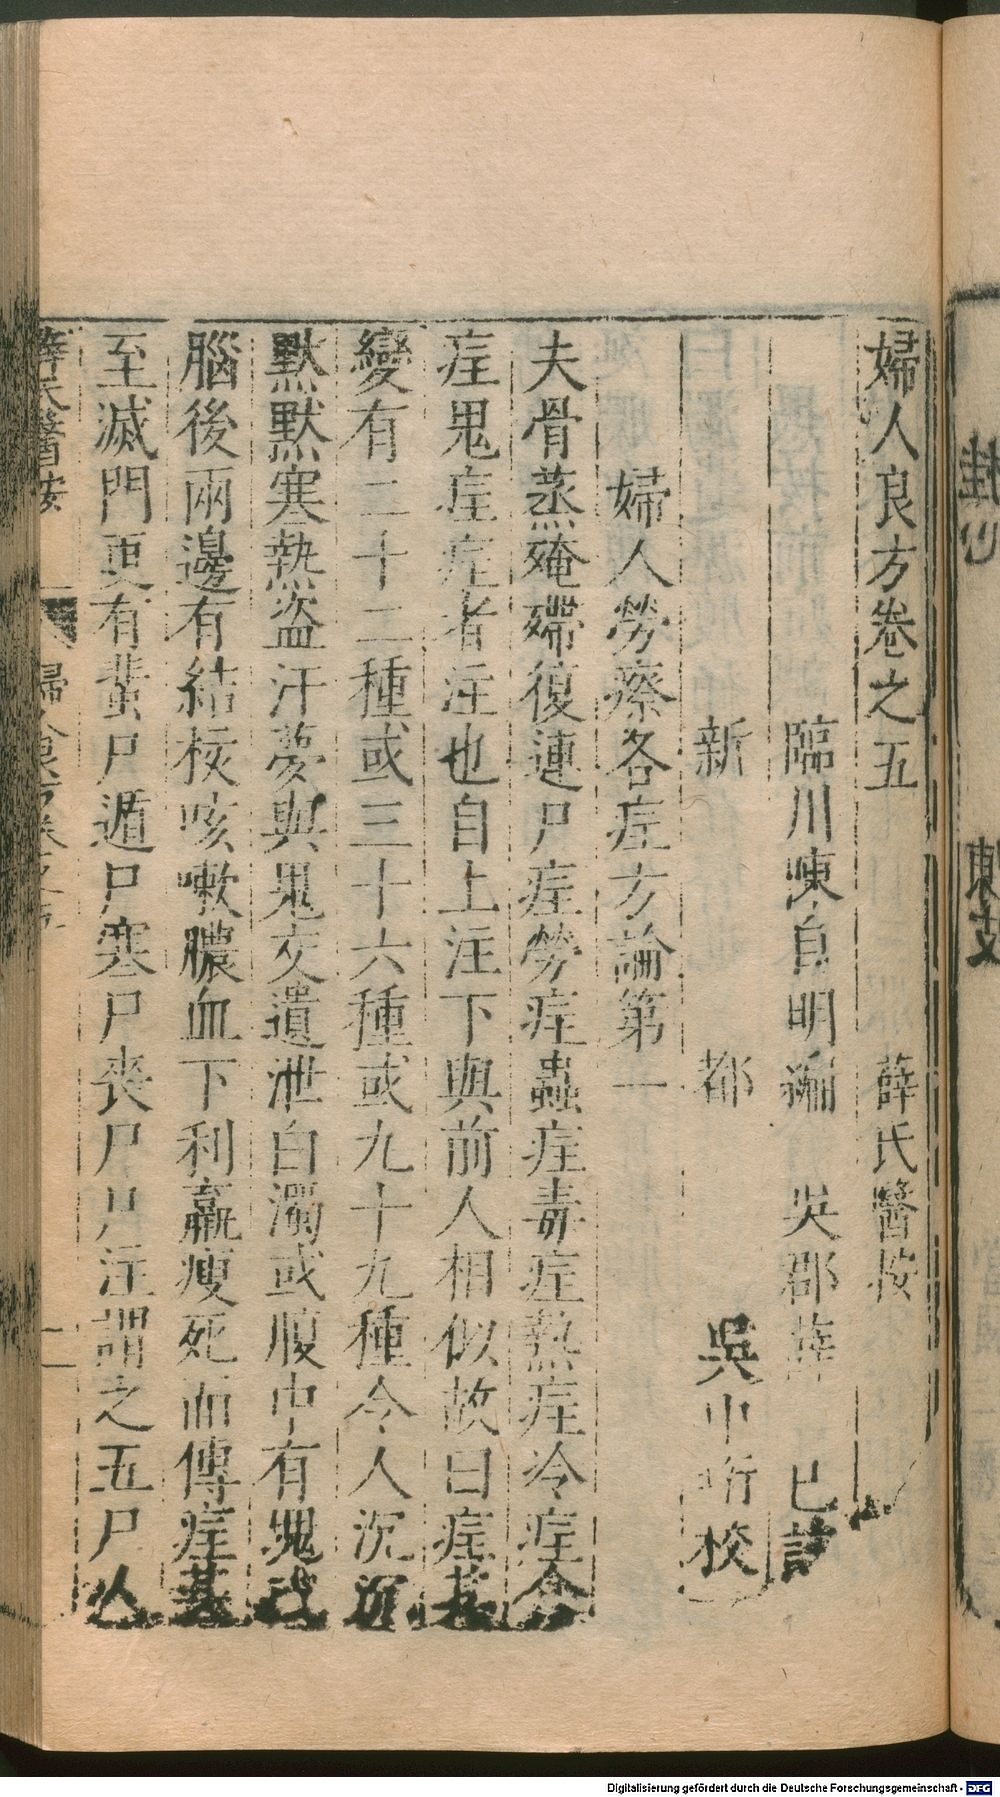 婦人良方卷之五 薛氏醫按
臨川陳自明編 吳郡薛 已註
新 都 吳中珩校
婦人勞瘵各疰方論第一
夫骨蒸殗殜復連尸疰勞疰蟲疰毒疰熱疰冷疰食
疰鬼疰疰者注也自上注下與前人相似故曰疰其
變有二十二種或三十六種或九十九種令人沉沉
默默寒熱盜汗夢與鬼交遺泄白濁或腹中有塊或
腦後兩邊有結核咳嗽膿血下利羸瘦死而傳疰甚
至滅門更有蜚尸遁尸寒尸喪尸尸注謂之五尸人
薛氏醫按 婦人良方卷之五 一
桂心
東支
Digitalisierung gefördert durch die Deutsche Forschungsgemeinschaft - DFG